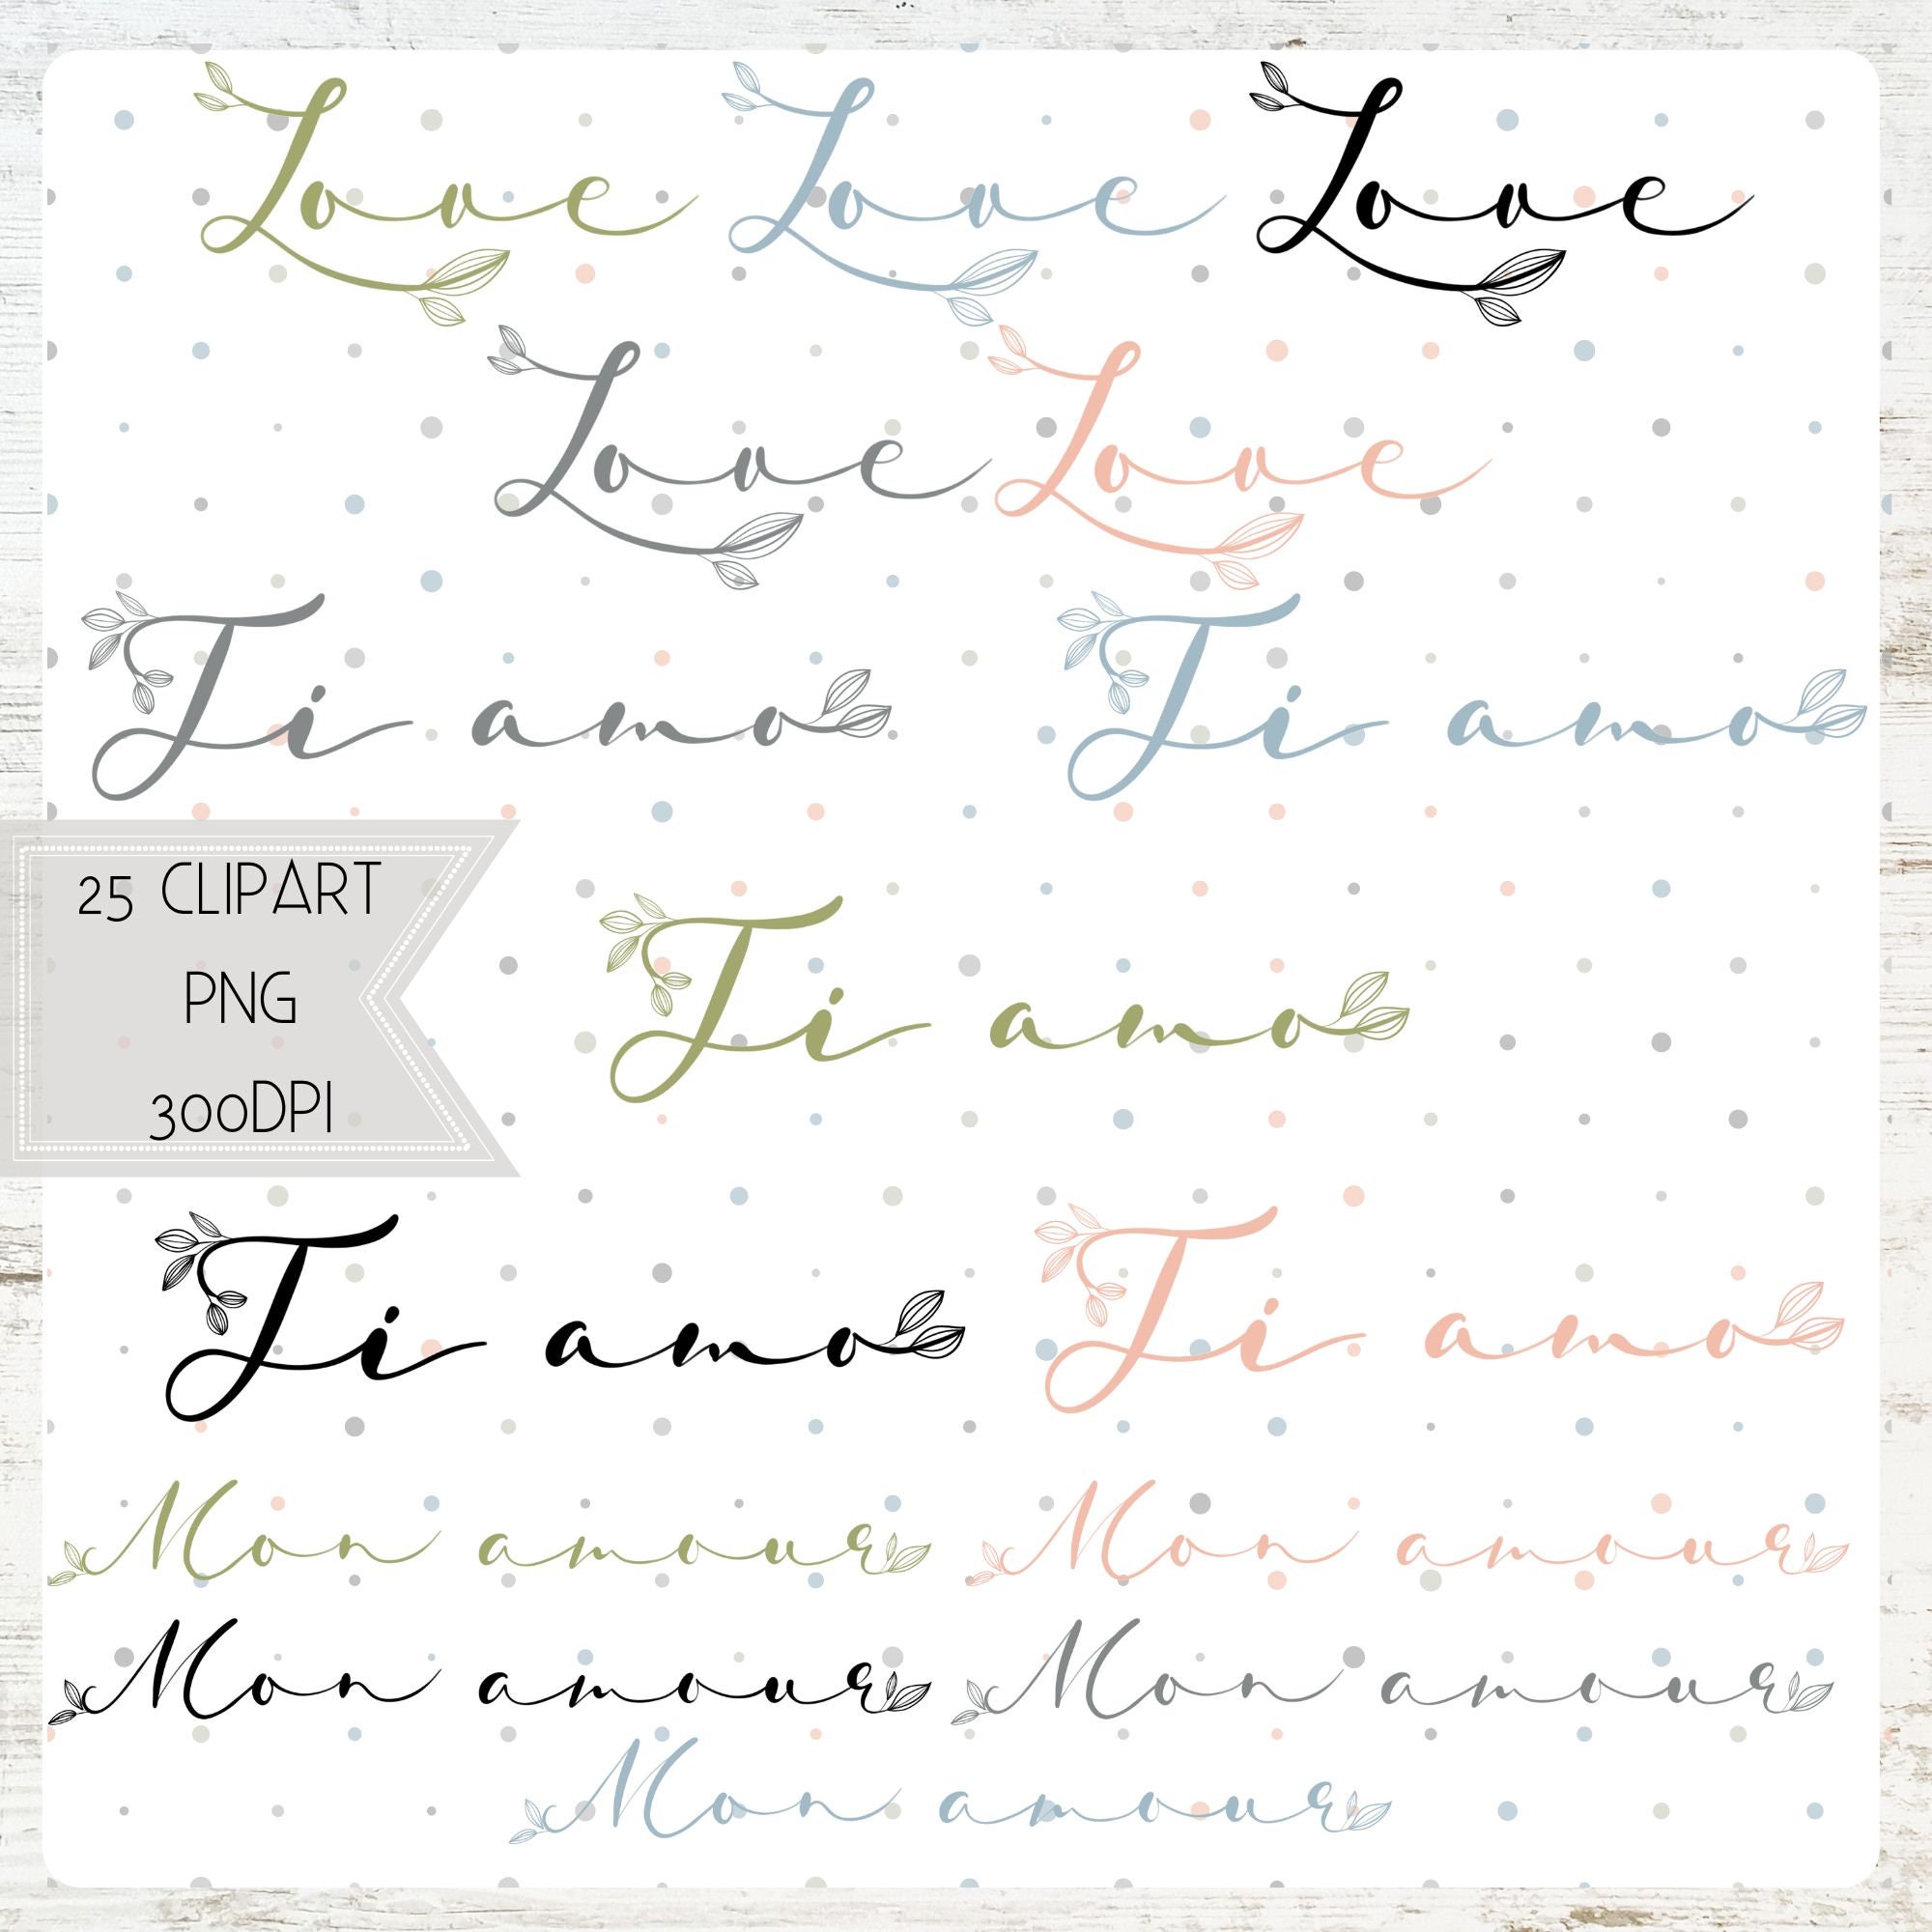 Love Love Love
Love Love
Ti amo Ti amo
25 CLIPART
PNG
300DPI
Ti amo
Ti amo Ti amo
Mon amour Mon amour
Mon amour Mon amour
Mon amour